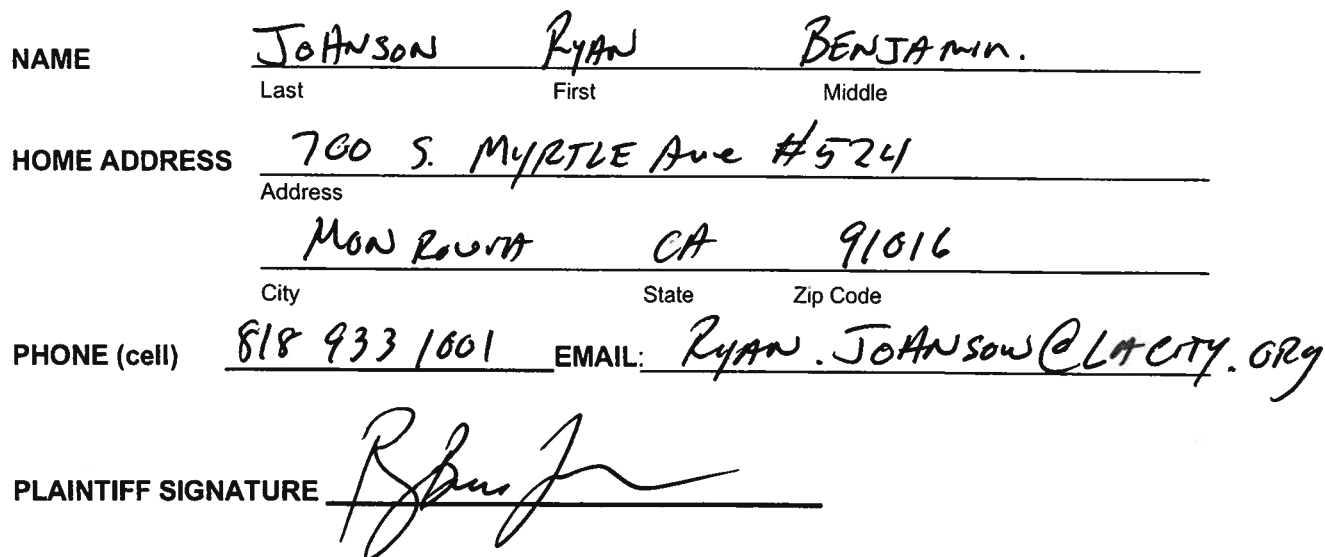 NAME JOHNSON RYAN BENJAMIN.
Last First Middle
HOME ADDRESS 700 S. MYRTLE Ave #524
Address
MONROVIA CA 91016
City State Zip Code
PHONE (cell) 818 933 1001 EMAIL: RYAN.JOHNSON@LACITY.ORG
PLAINTIFF SIGNATURE